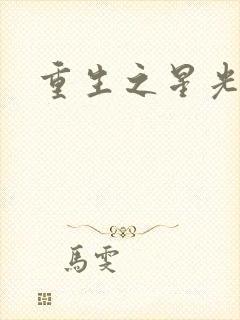 重生之星光
馬雯